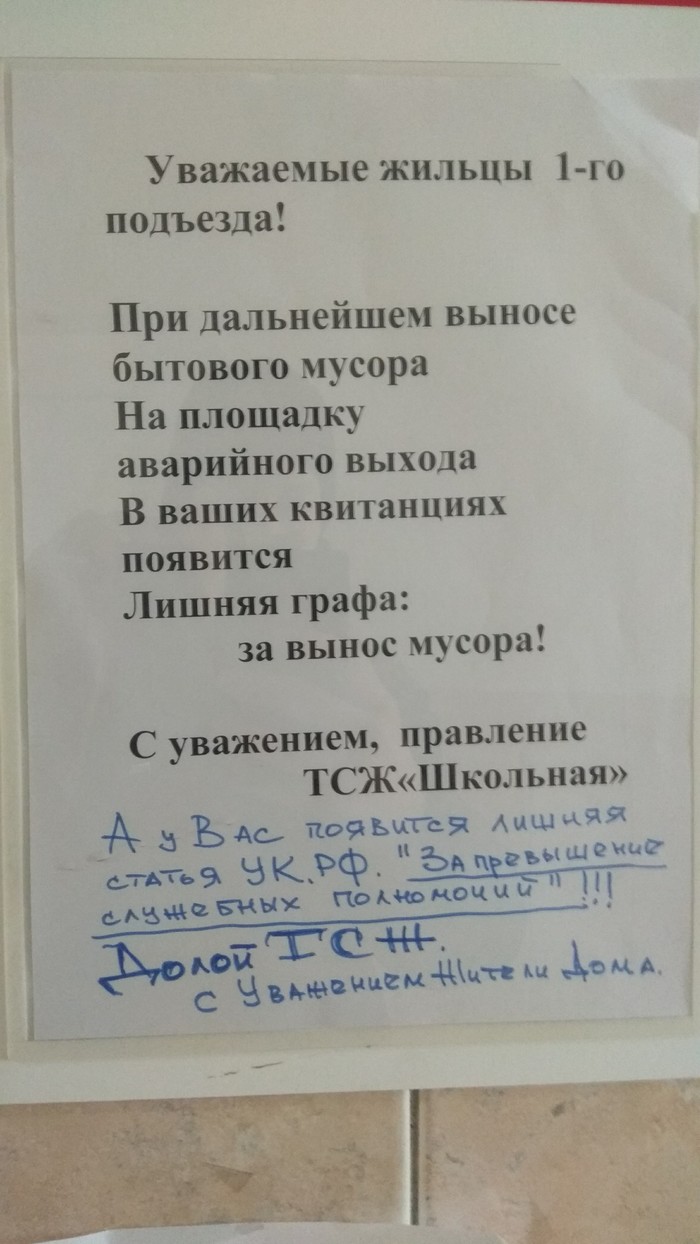 Уважаемые жильцы 1-го
подъезда!
При дальнейшем выносе
бытового мусора
На площадку
аварийного выхода
В ваших квитанциях
появится
Лишняя графа:
за вынос мусора!
С уважением, правление
ТСЖ«Школьная»
А у Вас появится лишняя
статья УК.РФ. "За превышение
служебных полномочий"!!!
Долой ТСЖ.
с Уважением Жители Дома.